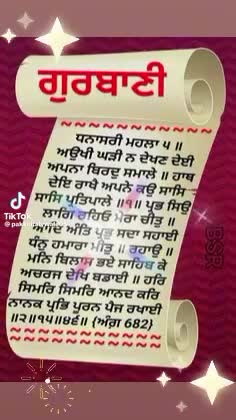 ਗੁਰਬਾਣੀ
ਧਨਾਸਰੀ ਮਹਲਾ ੫ ॥
ਅਉਖੀ ਘੜੀ ਨ ਦੇਖਣ ਦੇਈ
ਅਪਨਾ ਬਿਰਦੁ ਸਮਾਲੇ ॥ ਹਾਥ
ਦੇਇ ਰਾਖੈ ਅਪਨੇ ਕਉ ਸਾਸਿ
ਸਾਸਿ ਪ੍ਰਤਿਪਾਲੇ ॥੧॥ ਪ੍ਰਭ ਸਿਉ
ਲਾਗਿ ਰਹਿਓ ਮੇਰਾ ਚੀਤੁ ॥
ਅੰਤਿ ਪ੍ਰਭੁ ਸਦਾ ਸਹਾਈ
ਧੰਨੁ ਹਮਾਰਾ ਮੀਤੁ ॥ ਰਹਾਉ ॥
ਮਨਿ ਬਿਲਾਸ ਭਏ ਸਾਹਿਬ ਕੇ
ਅਚਰਜ ਦੇਖਿ ਬਡਾਈ ॥ ਹਰਿ
ਸਿਮਰਿ ਸਿਮਰਿ ਆਨਦ ਕਰਿ
ਨਾਨਕ ਪ੍ਰਭਿ ਪੂਰਨ ਪੈਜ ਰਖਾਈ
॥੨॥੧੫॥੪੬॥ {ਅੰਗ 682}
BSR
TikTok